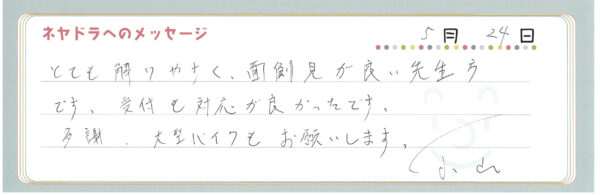 ネヤドラへのメッセージ
5月 24日
とても解りやすく、面倒見が良い先生方
です。受付も対応が良かったです。
多謝、大型バイクもお願いします。